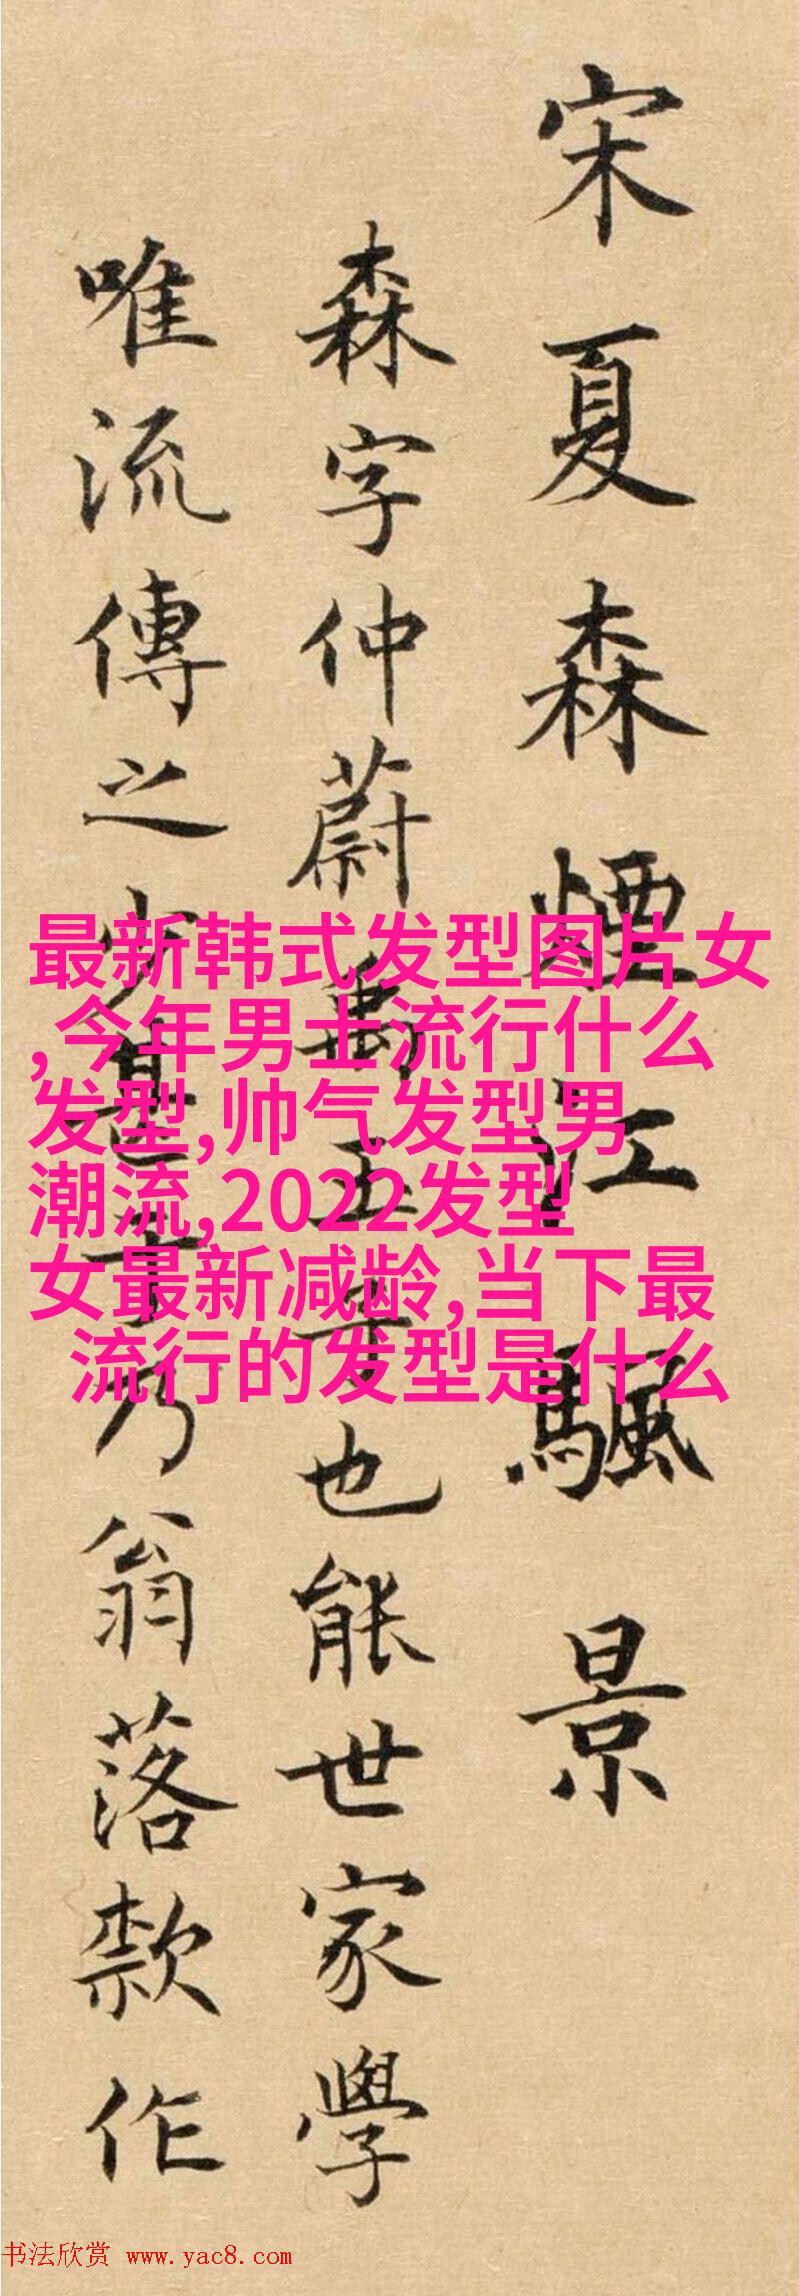 宋夏森煙江颿景
森字仲蔚禹玉子也能世家學
唯流傳之少甚于乃翁落款作
最新韩式发型图片女
,今年男士流行什么
发型,帅气发型男
潮流,2022发型
女最新减龄,当下最
流行的发型是什么
书法欣赏 www.yac8.com